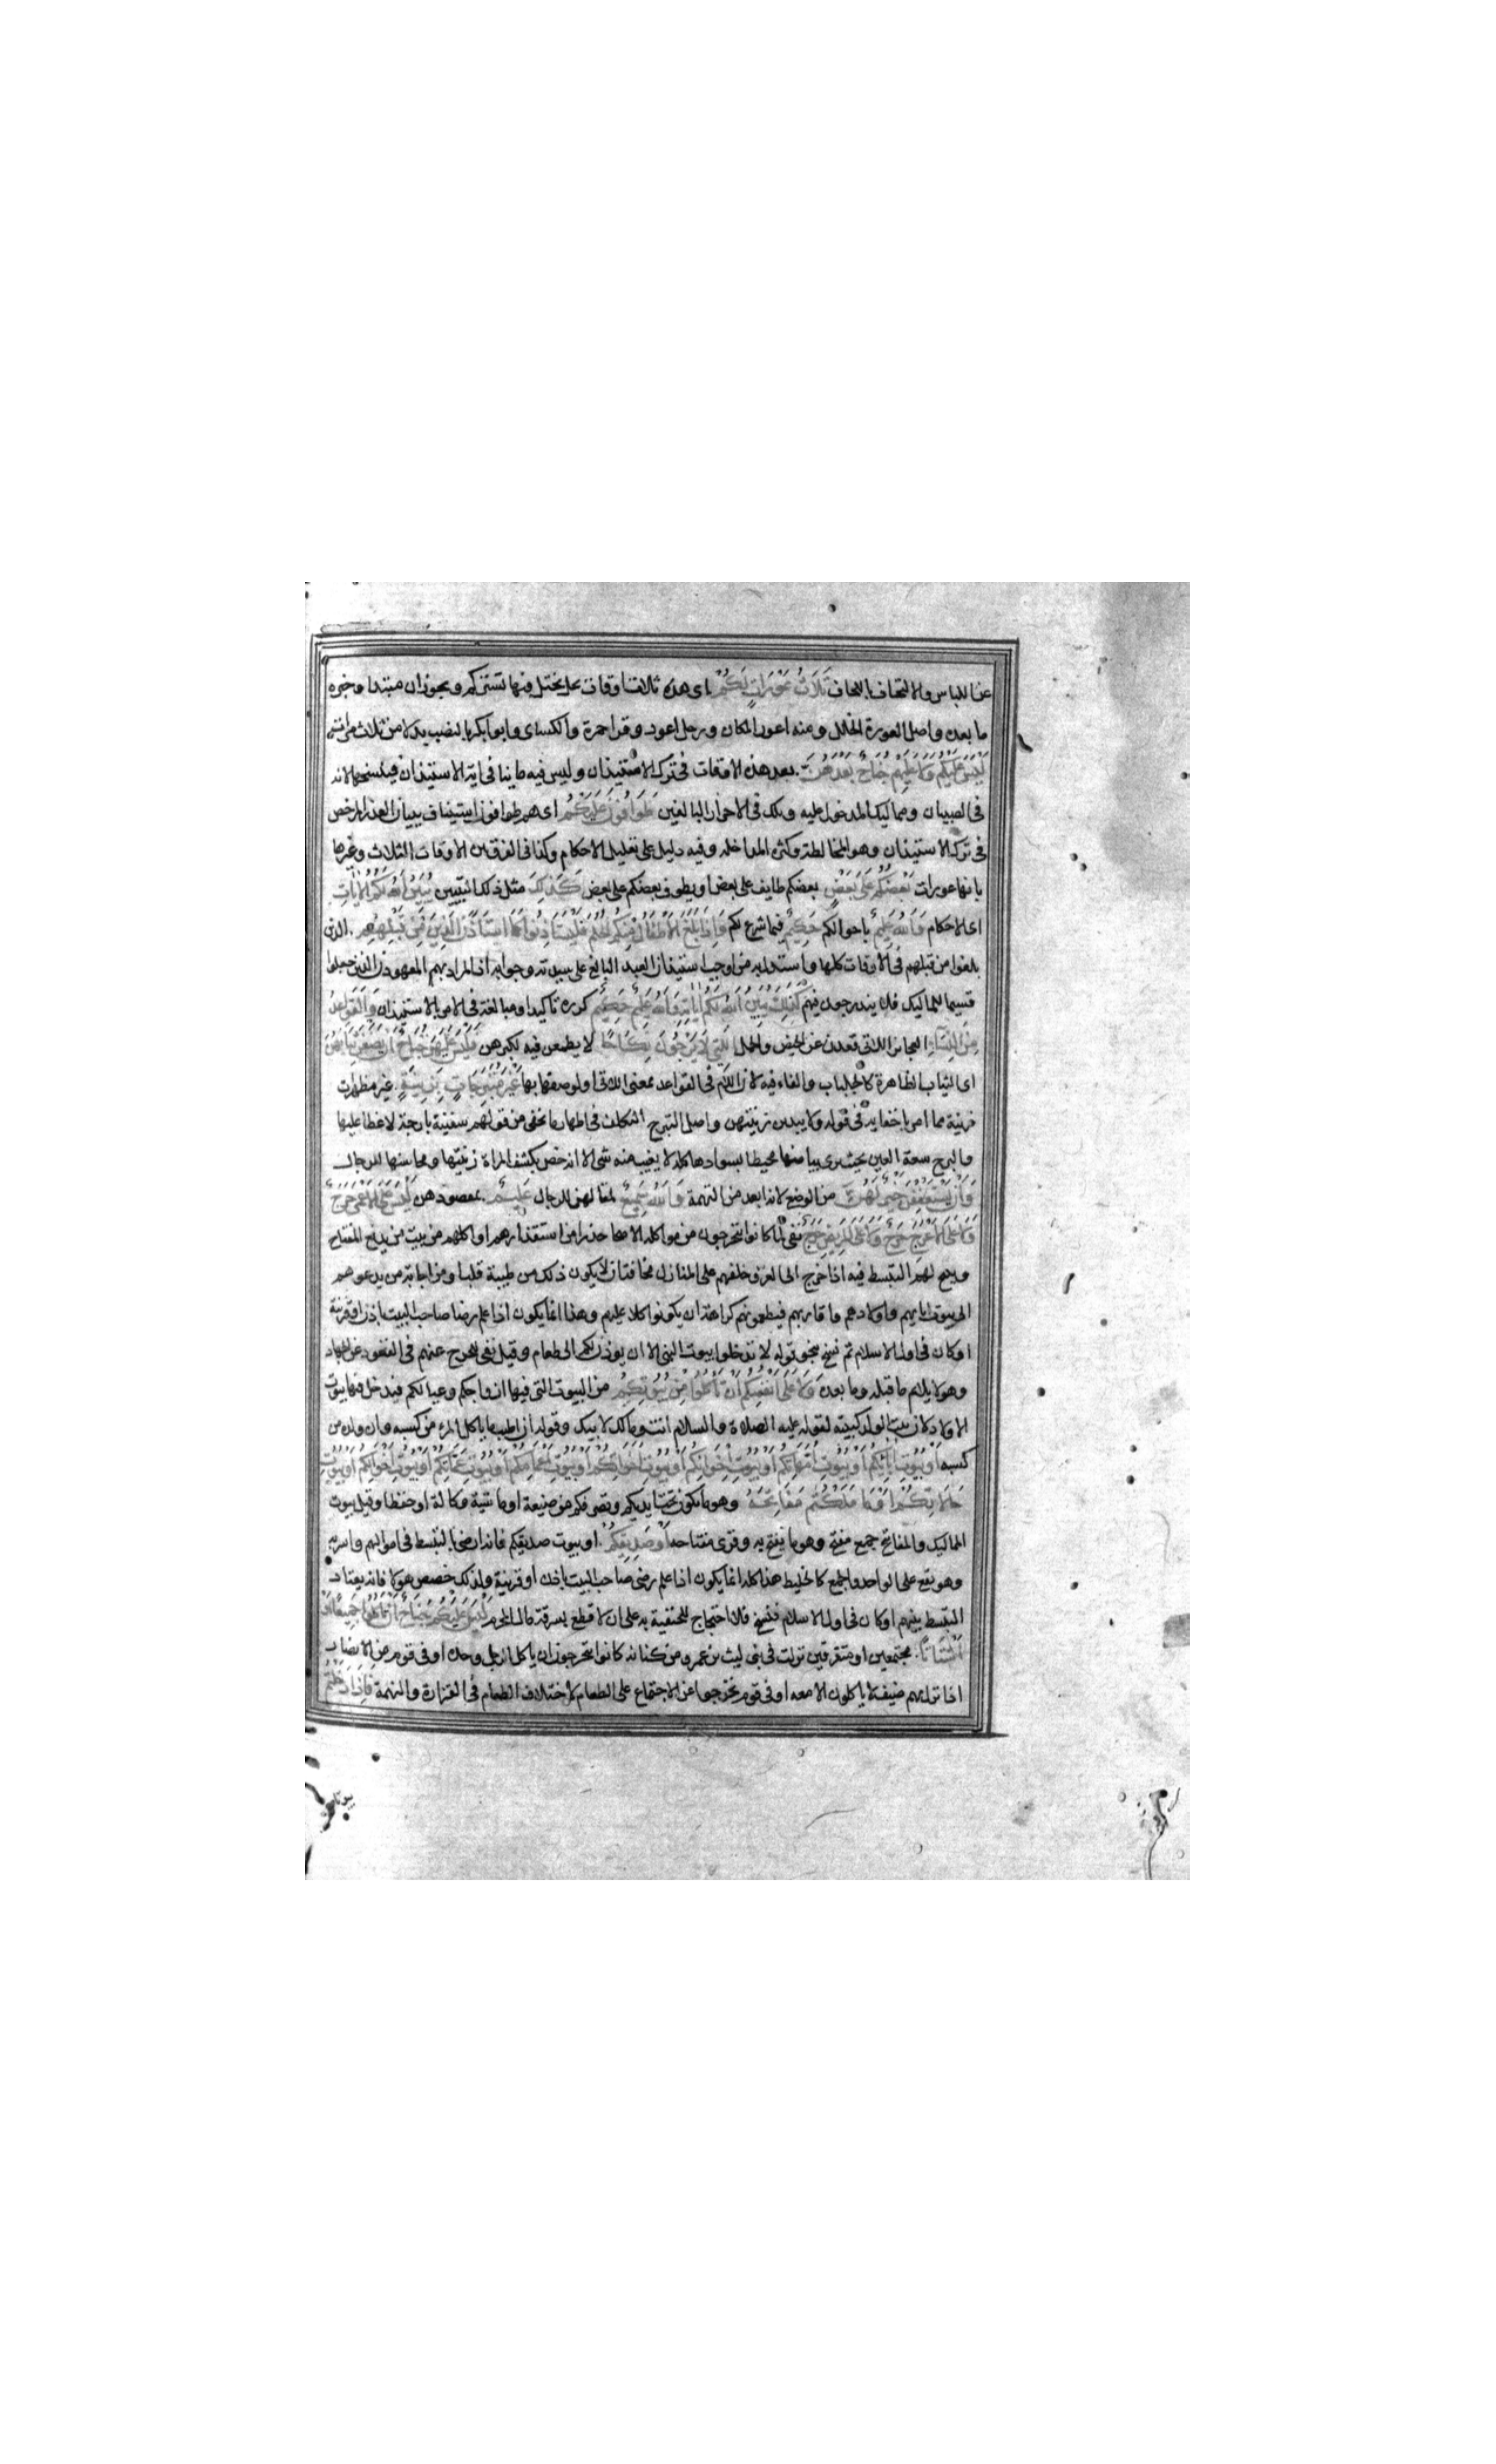 عن اللباس والالتحاف باللحاف ثَلَاثُ عَوْرَاتٍ لَكُمْ اى هذه ثلاث اوقات عل يختل فيها تستركم ويجوز ان مبتدا وخبره
ما بعده واصل العورة الخلل ومنه اعور المكان ورجل اعور وقرا حمزة والكساى وابوا بكر بالنصب بدلا من ثلاث مرات
لَيْسَ عَلَيْكُمْ وَلَا عَلَيْهِمْ جُنَاحٌ بَعْدَهُنَّ بعد هذه الاوقات فى ترك الاستيذان وليس فيه ما ينافى اية الاستيذان فينسخها لانه
فى الصبيان ومماليك المدخول عليه وتلك فى الاحرار البالغين طَوَّافُونَ عَلَيْكُمْ اى هم طوافون استيناف ببيان العذر المرخص
فى ترك الاستيذان وهو المخالطة وكثرة المداخلة وفيه دليل على تعليل الاحكام وكذا فى الفرق بين الاوقات الثلاث وغيرها
بانها عورات بَعْضُكُمْ عَلَى بَعْضٍ بعضكم طايف على بعض او يطوف بعضكم على بعض كَذَلِكَ مثل ذلك التبيين يُبَيِّنُ اللَّهُ لَكُمُ الْآيَاتِ
اى الاحكام وَاللَّهُ عَلِيمٌ باحوالكم حَكِيمٌ فيما شرع لكم وَإِذَا بَلَغَ الْأَطْفَالُ مِنْكُمُ الْحُلُمَ فَلْيَسْتَأْذِنُوا كَمَا اسْتَأْذَنَ الَّذِينَ مِنْ قَبْلِهِمْ الذين
بلغوا من قبلهم فى الاوقات كلها واستدل به من اوجب استيذان العبد البالغ على سيدته وجوابه ان المراد بهم المعهودن الذين جعلوا
قسيما للمماليك فلا يندرجون فيهم كَذَلِكَ يُبَيِّنُ اللَّهُ لَكُمْ آيَاتِهِ وَاللَّهُ عَلِيمٌ حَكِيمٌ كرره تاكيدا ومبالغة فى الامر بالاستيذان وَالْقَوَاعِدُ
مِنَ النِّسَاءِ العجائز اللاتى قعدن عن الحيض والحمل اللَّاتِي لَا يَرْجُونَ نِكَاحًا لا يطمعن فيه لكبرهن فَلَيْسَ عَلَيْهِنَّ جُنَاحٌ أَنْ يَضَعْنَ ثِيَابَهُنَّ
اى الثياب الظاهرة كالجلباب والفاء فيه لان اللام فى القواعد بمعنى اللاتى او لوصفها بها غَيْرَ مُتَبَرِّجَاتٍ بِزِينَةٍ غير مظهرات
زينة مما امر باخفايه فى قوله ولا يبدين زينتهن واصل التبرج التكلف فى اظهار ما يخفى من قولهم سفينة بارجة لا غطا عليها
والبرج سعة العين بحيث يرى بياضها محيطا بسوادها كله لا يغيب منه شى الا انه خص بكشف المراة زينتها ومحاسنها للرجال
وَأَنْ يَسْتَعْفِفْنَ خَيْرٌ لَهُنَّ من الوضع لانه ابعد من التهمة وَاللَّهُ سَمِيعٌ لمقالهن للرجال عَلِيمٌ بمقصودهن لَيْسَ عَلَى الْأَعْمَى حَرَجٌ
وَلَا عَلَى الْأَعْرَجِ حَرَجٌ وَلَا عَلَى الْمَرِيضِ حَرَجٌ نفى لما كانوا يتحرجون من مواكلة الاصحا حذرا من استقذارهم او اكلهم من بيت من يدفع المفتاح
ويبيح لهم التبسط فيه اذا خرج الى الغزو خلفهم على المنازل مخافة ان لا يكون ذلك من طيبة قلبا ومن اجابة من يدعوهم
الى بيوت ابايهم واولادهم واقاربهم فيطعمونهم كراهة ان يكونوا كلا عليهم وهذا انما يكون اذا علم رضا صاحب البيت باذن او قرينة
او كان فى اول الاسلام ثم نسخ بنحو قوله لا تدخلوا بيوت النبى الا ان يوذن لكم الى طعام وقيل نفى للحرج عنهم فى القعود عن الجهاد
وهو لا يلايم ما قبله وما بعده وَلَا عَلَى أَنْفُسِكُمْ أَنْ تَأْكُلُوا مِنْ بُيُوتِكُمْ من البيوت التى فيها ازواجكم وعيالكم فيدخل فيها بيوت
الاولاد لان بيت الولد كبيته لقوله عليه الصلاة والسلام انت ومالك لابيك وقوله ان اطيب ما ياكل المرء من كسبه وان ولده من
كسبه أَوْ بُيُوتِ آبَائِكُمْ أَوْ بُيُوتِ أُمَّهَاتِكُمْ أَوْ بُيُوتِ إِخْوَانِكُمْ أَوْ بُيُوتِ أَخَوَاتِكُمْ أَوْ بُيُوتِ أَعْمَامِكُمْ أَوْ بُيُوتِ عَمَّاتِكُمْ أَوْ بُيُوتِ أَخْوَالِكُمْ أَوْ بُيُوتِ
خَالَاتِكُمْ أَوْ مَا مَلَكْتُمْ مَفَاتِحَهُ وهو ما يكون تحت ايديكم وتصرفكم من ضيعة او ماشية وكالة او حفظا وقيل بيوت
المماليك والمفاتح جمع مفتح وهو ما يفتح به وقرى مفتاحه أَوْ صَدِيقِكُمْ او بيوت صديقكم فانه ارضى بالتبسط فى اموالهم واسر به
وهو يقع على الواحد والجمع كالخليط هذا كله انما يكون اذا علم رضى صاحب البيت باذن او قرينة ولذلك خصص هولا فانه يعتاد
التبسط بينهم او كان فى اول الاسلام فنسخ فلا احتجاج للحنفية به على ان لا قطع بسرقة مال المحرم لَيْسَ عَلَيْكُمْ جُنَاحٌ أَنْ تَأْكُلُوا جَمِيعًا أَوْ
أَشْتَاتًا مجتمعين او متفرقين نزلت فى بنى ليث بن عمرو من كنانة كانوا يتحرجون ان ياكل الرجل وحده او فى قوم من الانصار
اذا نزل بهم ضيف لا ياكلون الا معه او فى قوم تحرجوا عن الاجتماع على الطعام لاختلاف الطعام فى القزازة والنهمة فَإِذَا دَخَلْتُمْ